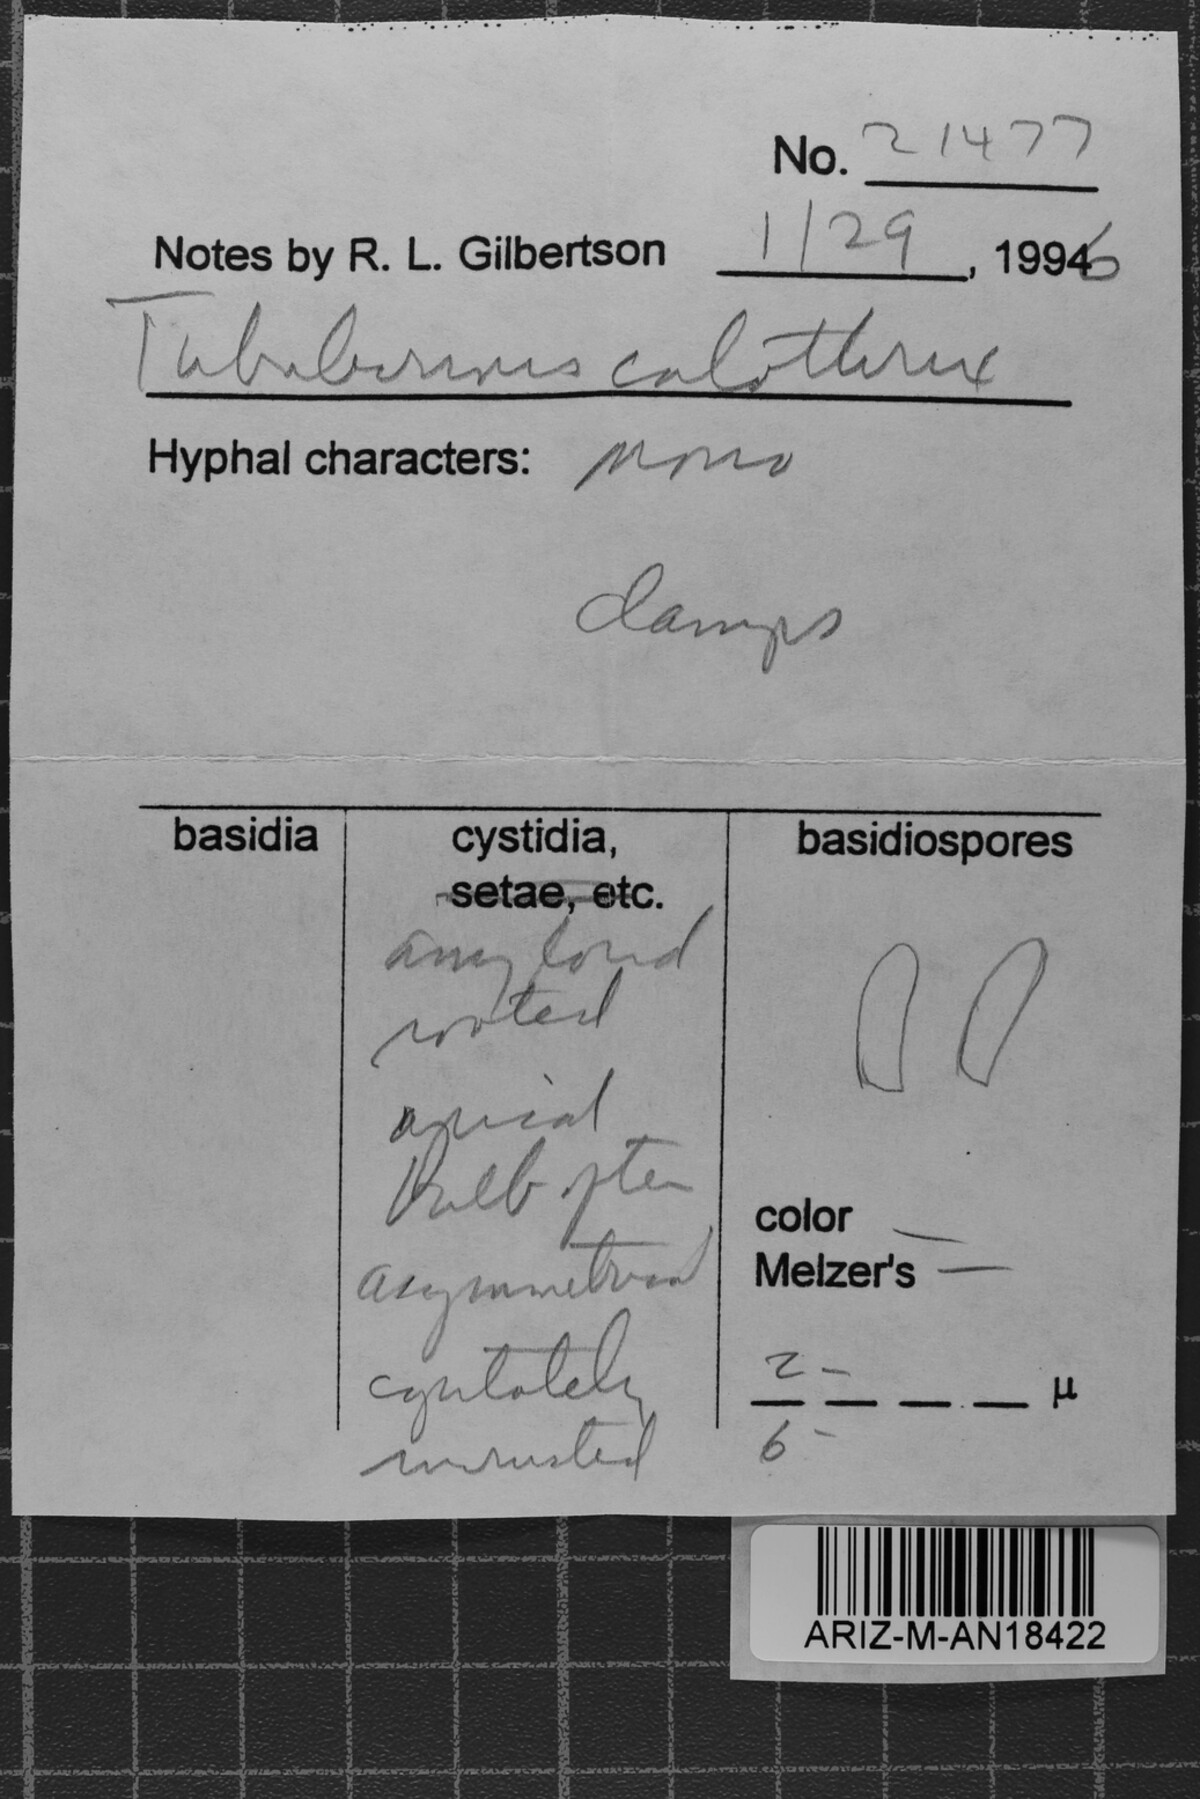 No. 21477
Notes by R. L. Gilbertson 1/29, 1996
Tubulicrinis calothrix
Hyphal characters: mono
clamps
basidia
cystidia,
setae, etc.
amyloid
rooted
apical
bulb often
asymmetrical
encrusted
basidiospores
color —
Melzer's —
2 –
μ
6 –
ARIZ-M-AN18422